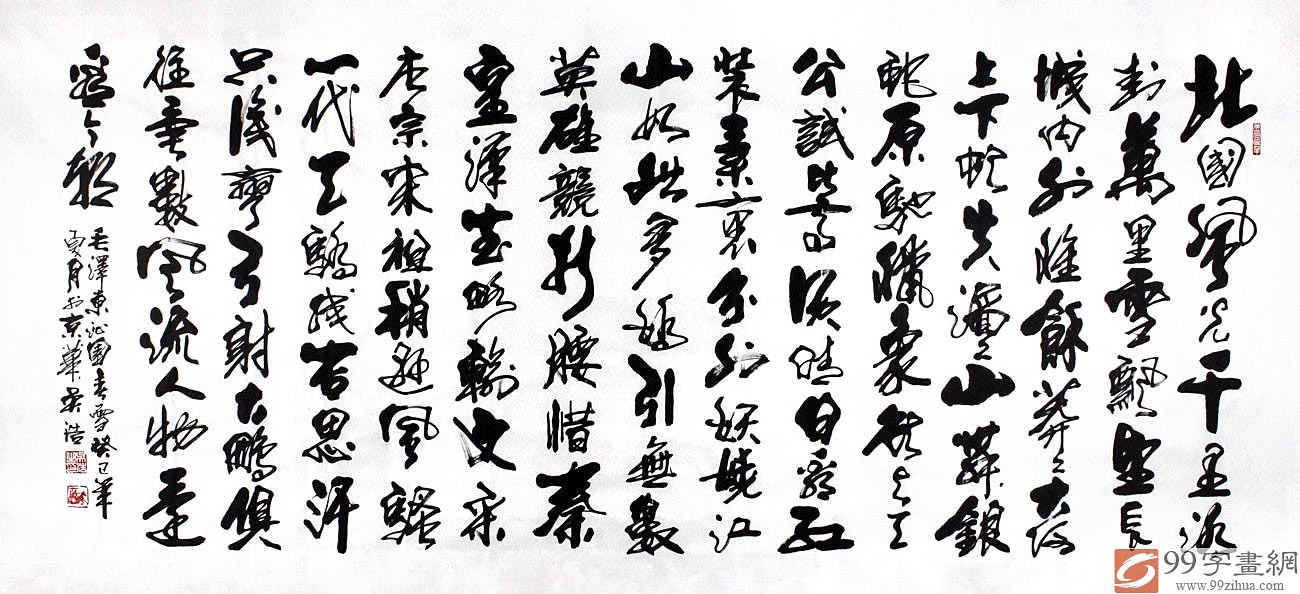 北國風光千里冰
封萬里雪飄望長
城內外惟餘莽々大河
上下頓失滔々山舞銀
蛇原馳臘象欲與天
公試比高須晴日看紅
裝素裹分外妖嬈江
山如此多嬌引無數
英雄競折腰惜秦
皇漢武略輸文采
唐宗宋祖稍遜風騷
一代天驕成吉思汗
只識彎弓射大鵬俱
往矣數風流人物還
看今朝
毛澤東沁園春雪癸巳年
夏月於京華吳浩
99字畫網
www.99zihua.com